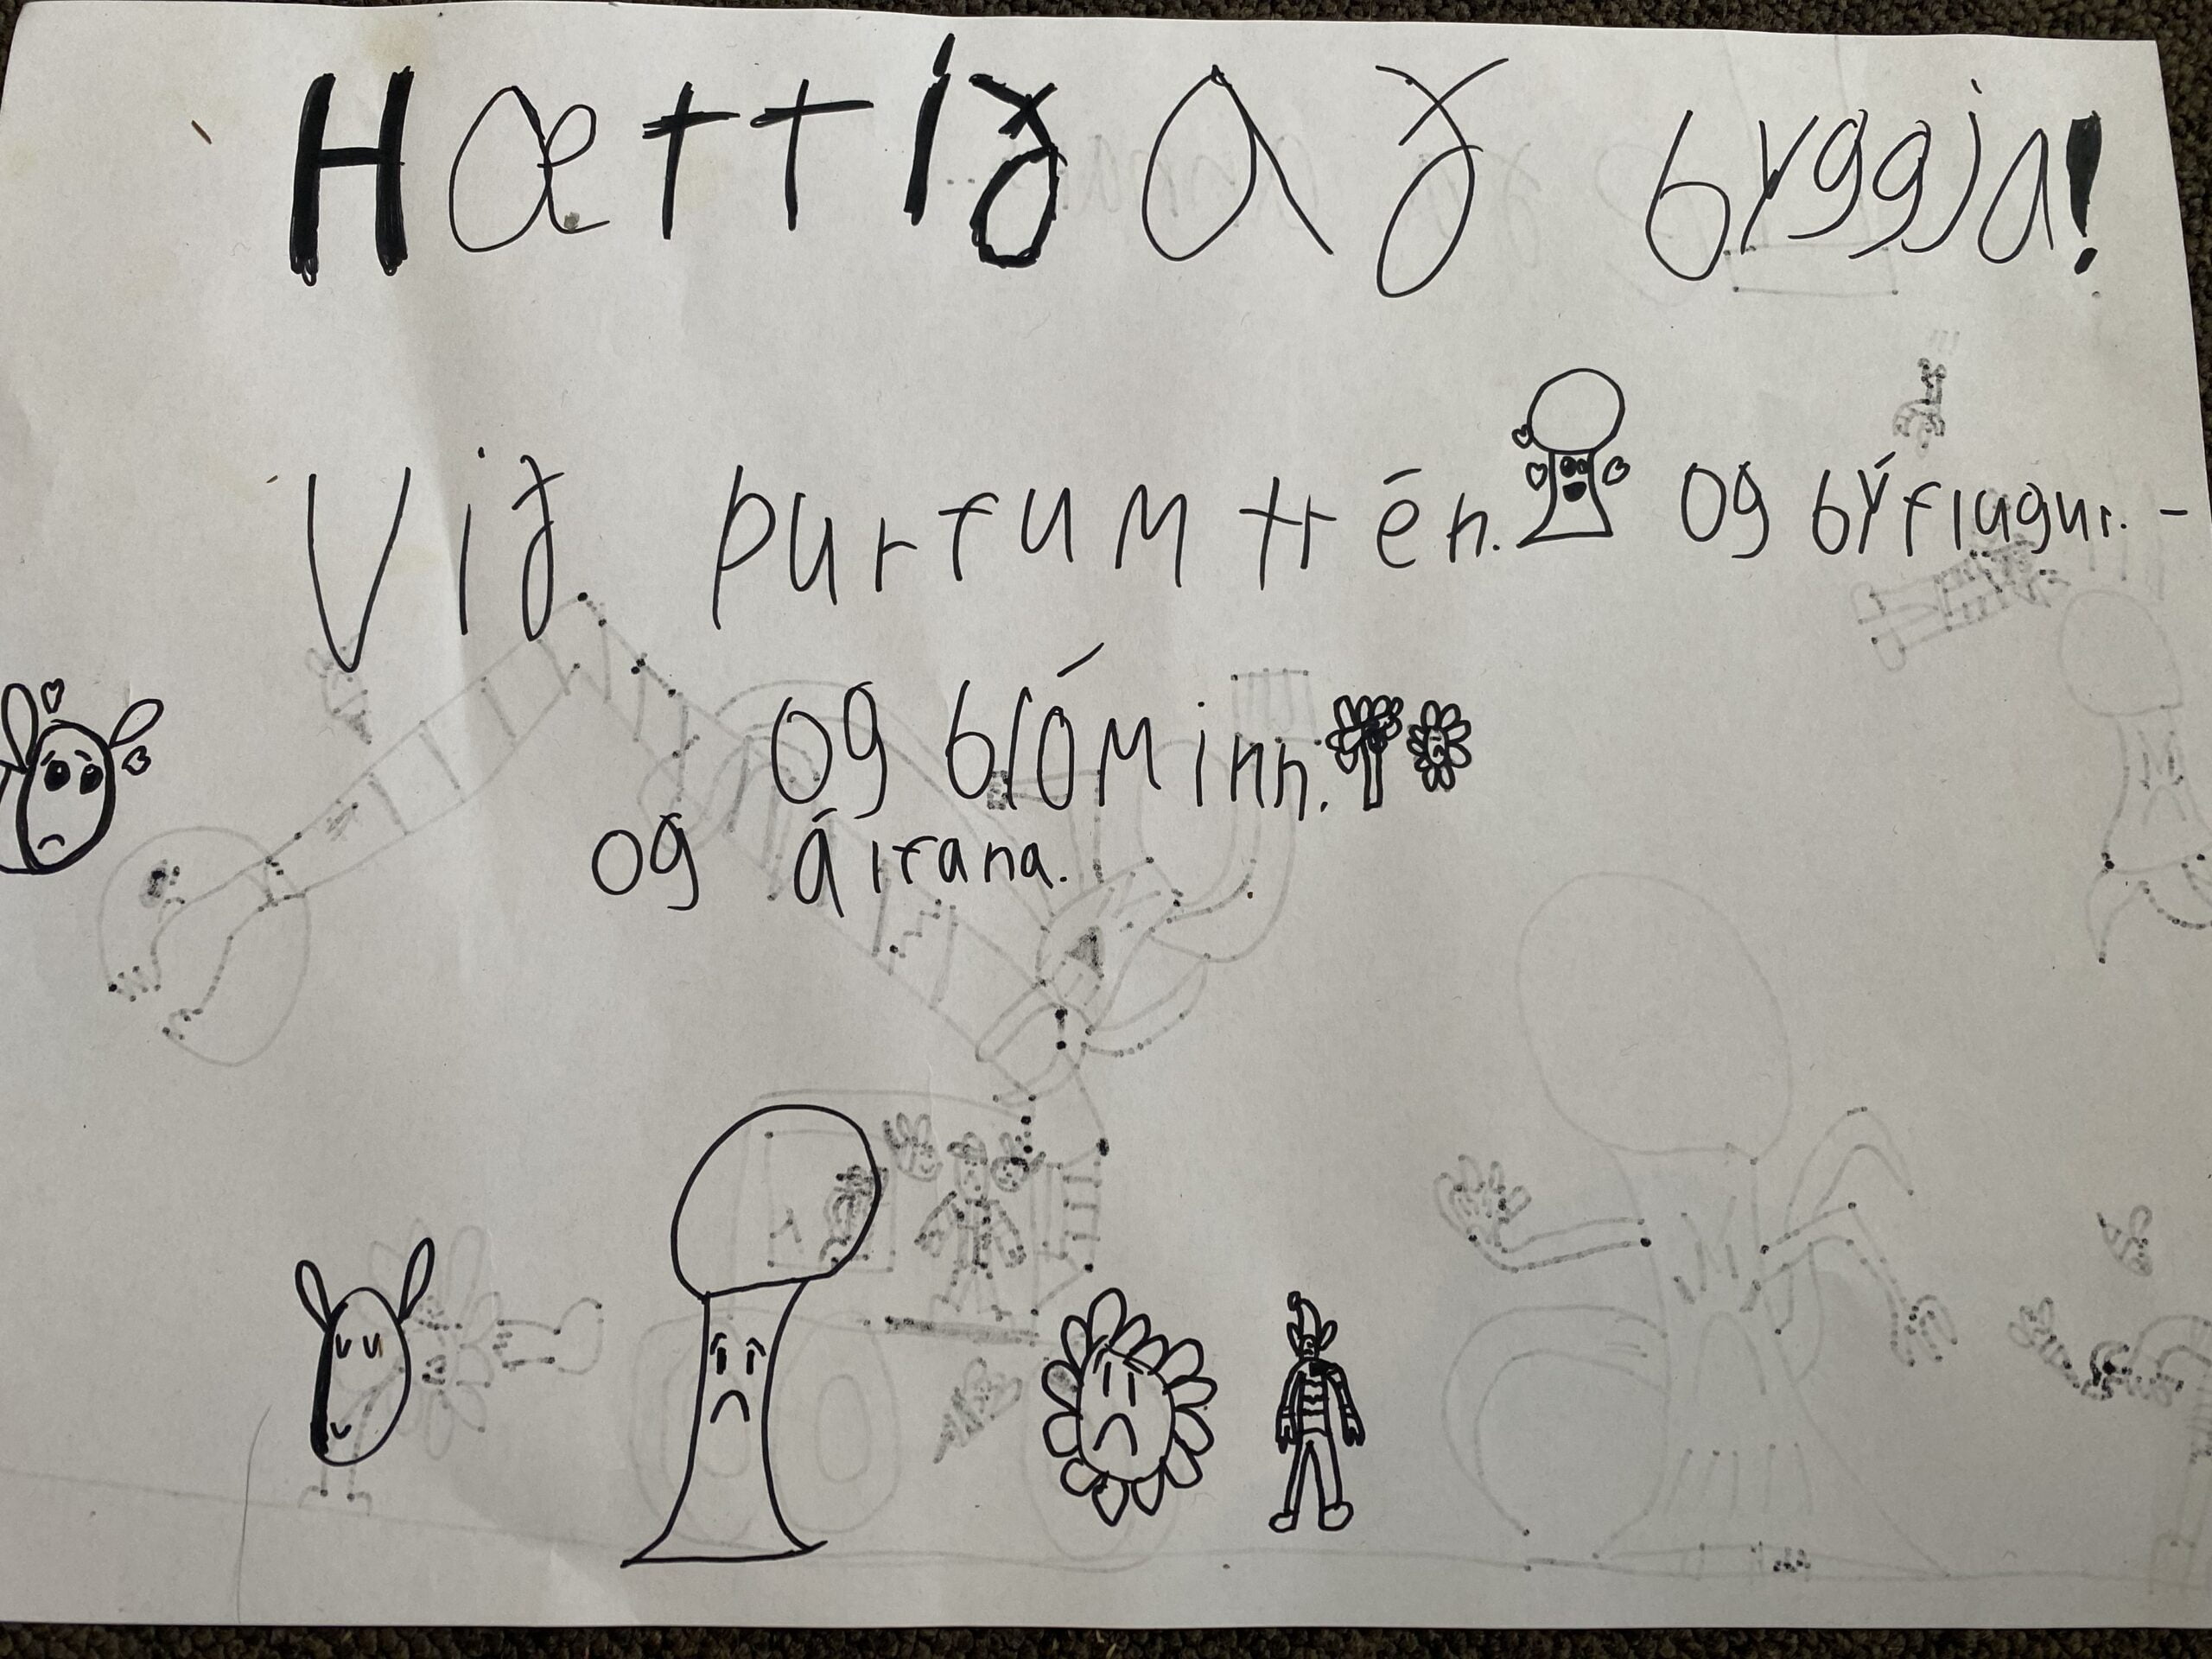 Hættið að byggja!
Við. þurfum trén. og býflugur. -
og blóminn.
og álfana.